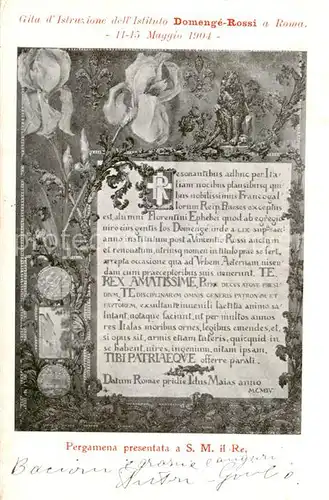 Gita d'Istruzione dell'Istituto Domengé-Rossi a Roma.
- 11-15 Maggio 1904 -
PR
esonantibus adhuc per Ita
liam vocibus plausibusq. qui
bus nobilissimus Francogal
lorum Reip. Praeses exceptus
est, alumni Florentini Ephebei quod ab egregio
viro con gentis Ios. Domengé
anno institutum post a Vincentio Rossi auctum
et renovatum, utriusq. nomen in titulo prae se fert,
arrepta occasione qua ad Urbem Aeternam visen
dam cum praeceptoribus suis venerunt, TE
REX AMATISSIME,
TE DISCIPLINARUM OMNIS GENERIS PATRONUM ET
exsultantes iuvenili laetitia animo sa
lutant, votaque faciunt, ut per multos annos
res Italas moribus ornes, legibus emendes, et,
si opus sit, armis etiam tuteris, quicquid in
se habent, vires, ingenium, vitam ipsam,
TIBI PATRIAEQUE offerre parati.
Datum Romae pridie Idus Maias anno
MCMIV
Pergamena presentata a S. M. il Re.
Bacioni e grazie e auguri